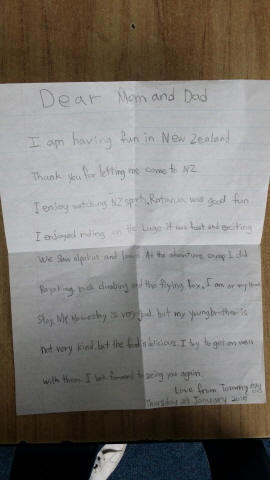 Dear Mom and Dad
I am having fun in New Zealand
Thank you for letting me come to NZ.
I enjoy watching NZ sports, Rotorua was good fun
I enjoyed riding on the Luge it was fast and exciting
We saw alpakas and lamas At the adventure camp I did
Kayaking, rock climbing and the flying fox, I am on my home
Stay, My Homestay is very good, but my young brother is
not very kind, but the food is delicious. I try to get on well
with them. I look forward to seeing you again.
Love from Tommy
Thursday 28 January 2016